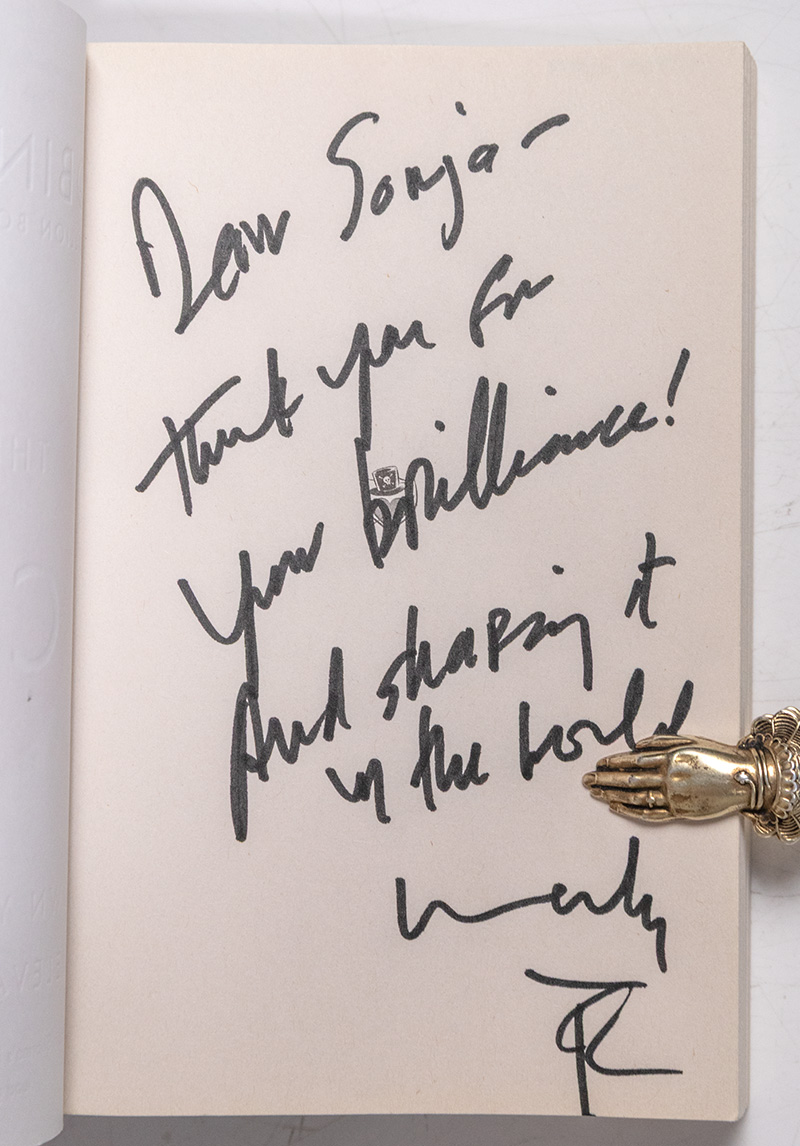 Dear Sonja-
Thank you for
your brilliance!
And shaping it
in the world
Warmly